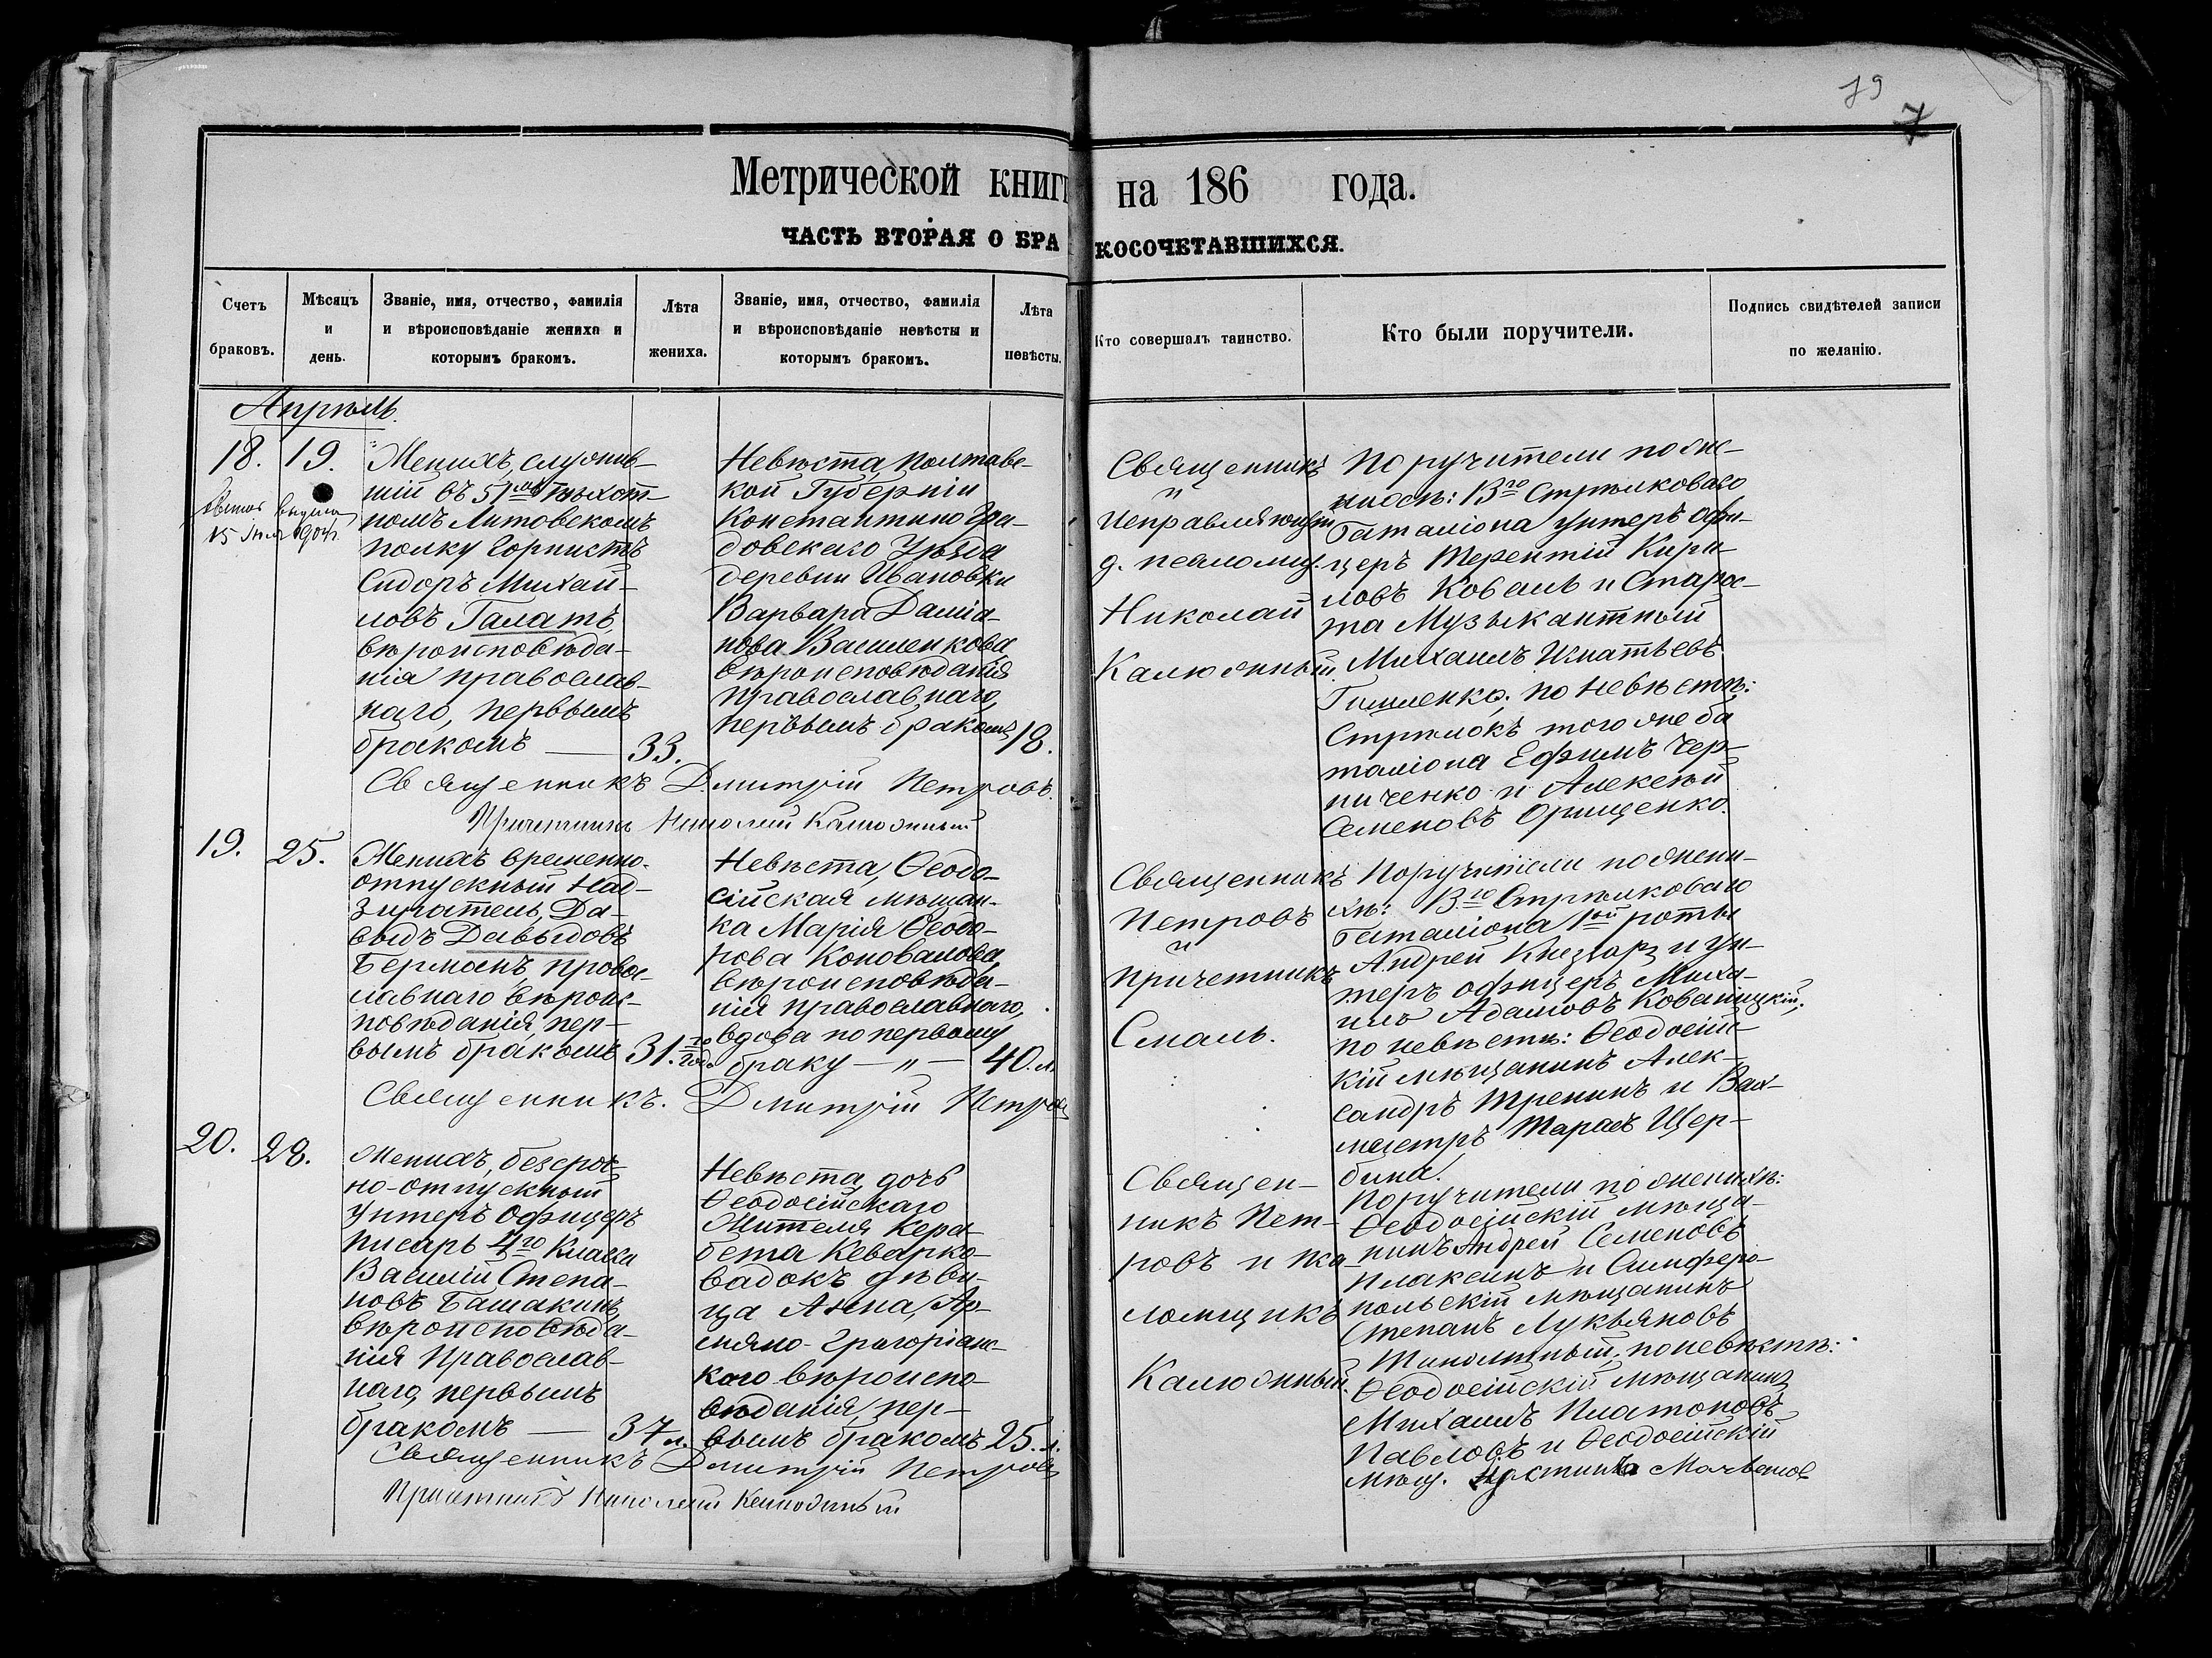 79
7
Метрической книги на 186 года.
ЧАСТЬ ВТОРАЯ О БРАКОСОЧЕТАВШИХСЯ.
Счетъ браковъ.
Мѣсяцъ и день.
Званіе, имя, отчество, фамилія
и вѣроисповѣданіе жениха и
которымъ бракомъ.
Лѣта жениха.
Званіе, имя, отчество, фамилія
и вѣроисповѣданіе невѣсты и
которымъ бракомъ.
Лѣта невѣсты.
Кто совершалъ таинство.
Кто были поручители.
Подпись свидѣтелей записи
по желанію.
Апрѣль.
18.
19.
15 904 г.
Женихъ, служив-
шій въ 51мъ Пѣхот-
номъ Литовскомъ
полку Горнистъ
Сидоръ Михай-
ловъ Галатъ,
вѣроисповѣда-
нія православ-
наго, первымъ
бракомъ —
33.
Невѣста, Полтавс-
кой Губерніи
Константиногра-
довскаго Уѣзда
деревни Ивановки
Варвара Даміа-
нова Василенкова
вѣроисповѣданія
православнаго,
первымъ бракомъ
18.
Священникъ Дмитрій Петровъ.
Причетникъ Николай Калюжный
Священникъ
и
исправляющій
д. псаломщ.
Николай
Калюжный.
Поручители по же-
нихѣ: 13го Стрѣлковаго
баталіона унтеръ офи-
церъ Терентій Кири-
ловъ Коваль и Старос-
та Музыкантный
Михаилъ Игнатьевъ
Гишленко; по невѣстѣ:
Стрѣлокъ того же ба
таліона Ефимъ Чер-
ниченко и Алексѣй
Семеновъ Орищенко.
19.
25.
Женихъ временно-
отпускный Над-
зиратель, Да-
выдъ Давыдовъ
Берманъ, правос-
лавнаго вѣроис-
повѣданія, пер-
вымъ бракомъ
31. го года
Невѣста, Ѳеодо-
сійская мѣщан-
ка Марія Ѳеодо-
рова Коновалова,
вѣроисповѣда-
нія православнаго,
вдова по первому
браку — „ —
40. л.
Священникъ. Дмитрій Петровъ
Священникъ
Петровъ
и
причетникъ
Смаль.
Поручители по жени-
хѣ: 13го Стрѣлковаго
баталіона 1ой роты
Андрей и ун-
теръ офицеръ Миха-
илъ Адамовъ Ковалицкій;
по невѣстѣ: Ѳеодосійс-
кій мѣщанинъ Алек-
сандръ Тренинъ и Вах-
местръ Тарасъ Щер-
бина.
20.
28.
Женихъ, безсроч-
но-отпускный
унтеръ офицеръ
писарь 4го Класса
Василій Степа-
новъ Башакинъ,
вѣроисповѣда-
нія Православ-
наго, первымъ
бракомъ —
37 л.
Невѣста, дочь
Ѳеодосійскаго
Жителя Кера-
бета Кеварко-
вадокъ дѣви-
ца Анна, Ар-
мяно-Григоріанс-
каго вѣроиспо-
вѣданія, пер-
вымъ бракомъ
25. л.
Священникъ Дмитрій Петровъ
Причетникъ Николай Калюжный
Священ-
никъ Пет-
ровъ и пса-
ломщикъ
Калюжный.
Поручители по женихѣ:
Ѳеодосійскій мѣща-
нинъ Андрей Семеновъ
Плаксинъ и Симферо-
польскій мѣщанинъ
Степанъ Лукьяновъ
по невѣстѣ:
Ѳеодосійскій мѣщанинъ
Михаилъ Платоновъ
Павловъ и Ѳеодосійскій
мѣщ.